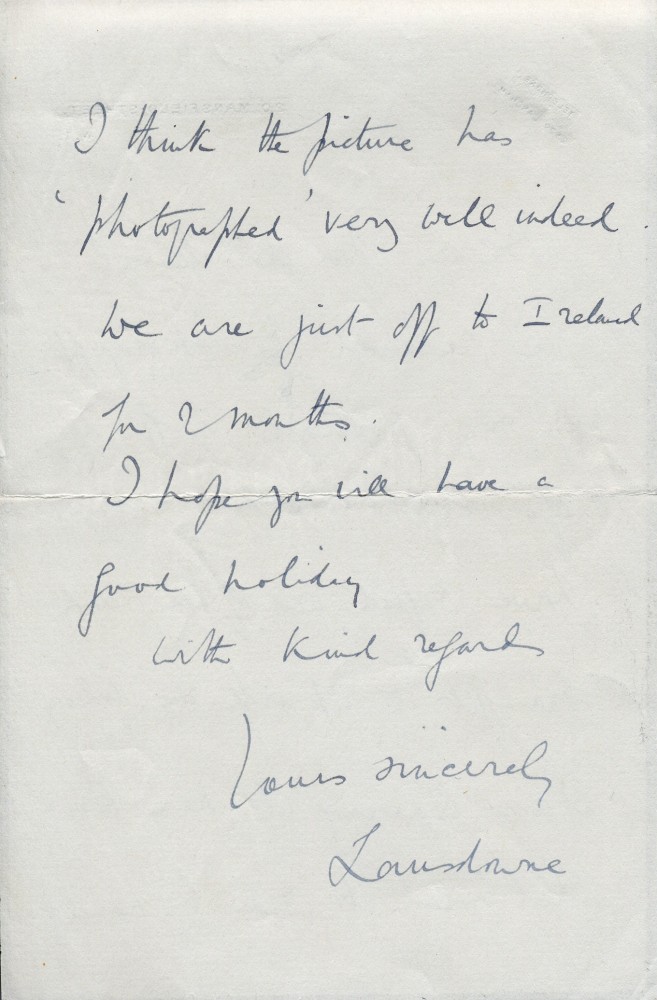 I think the picture has
'photographed' very well indeed.
We are just off to Ireland
for 2 months.
I hope you will have a
good holiday
with kind regards
Yours sincerely
Lansdowne